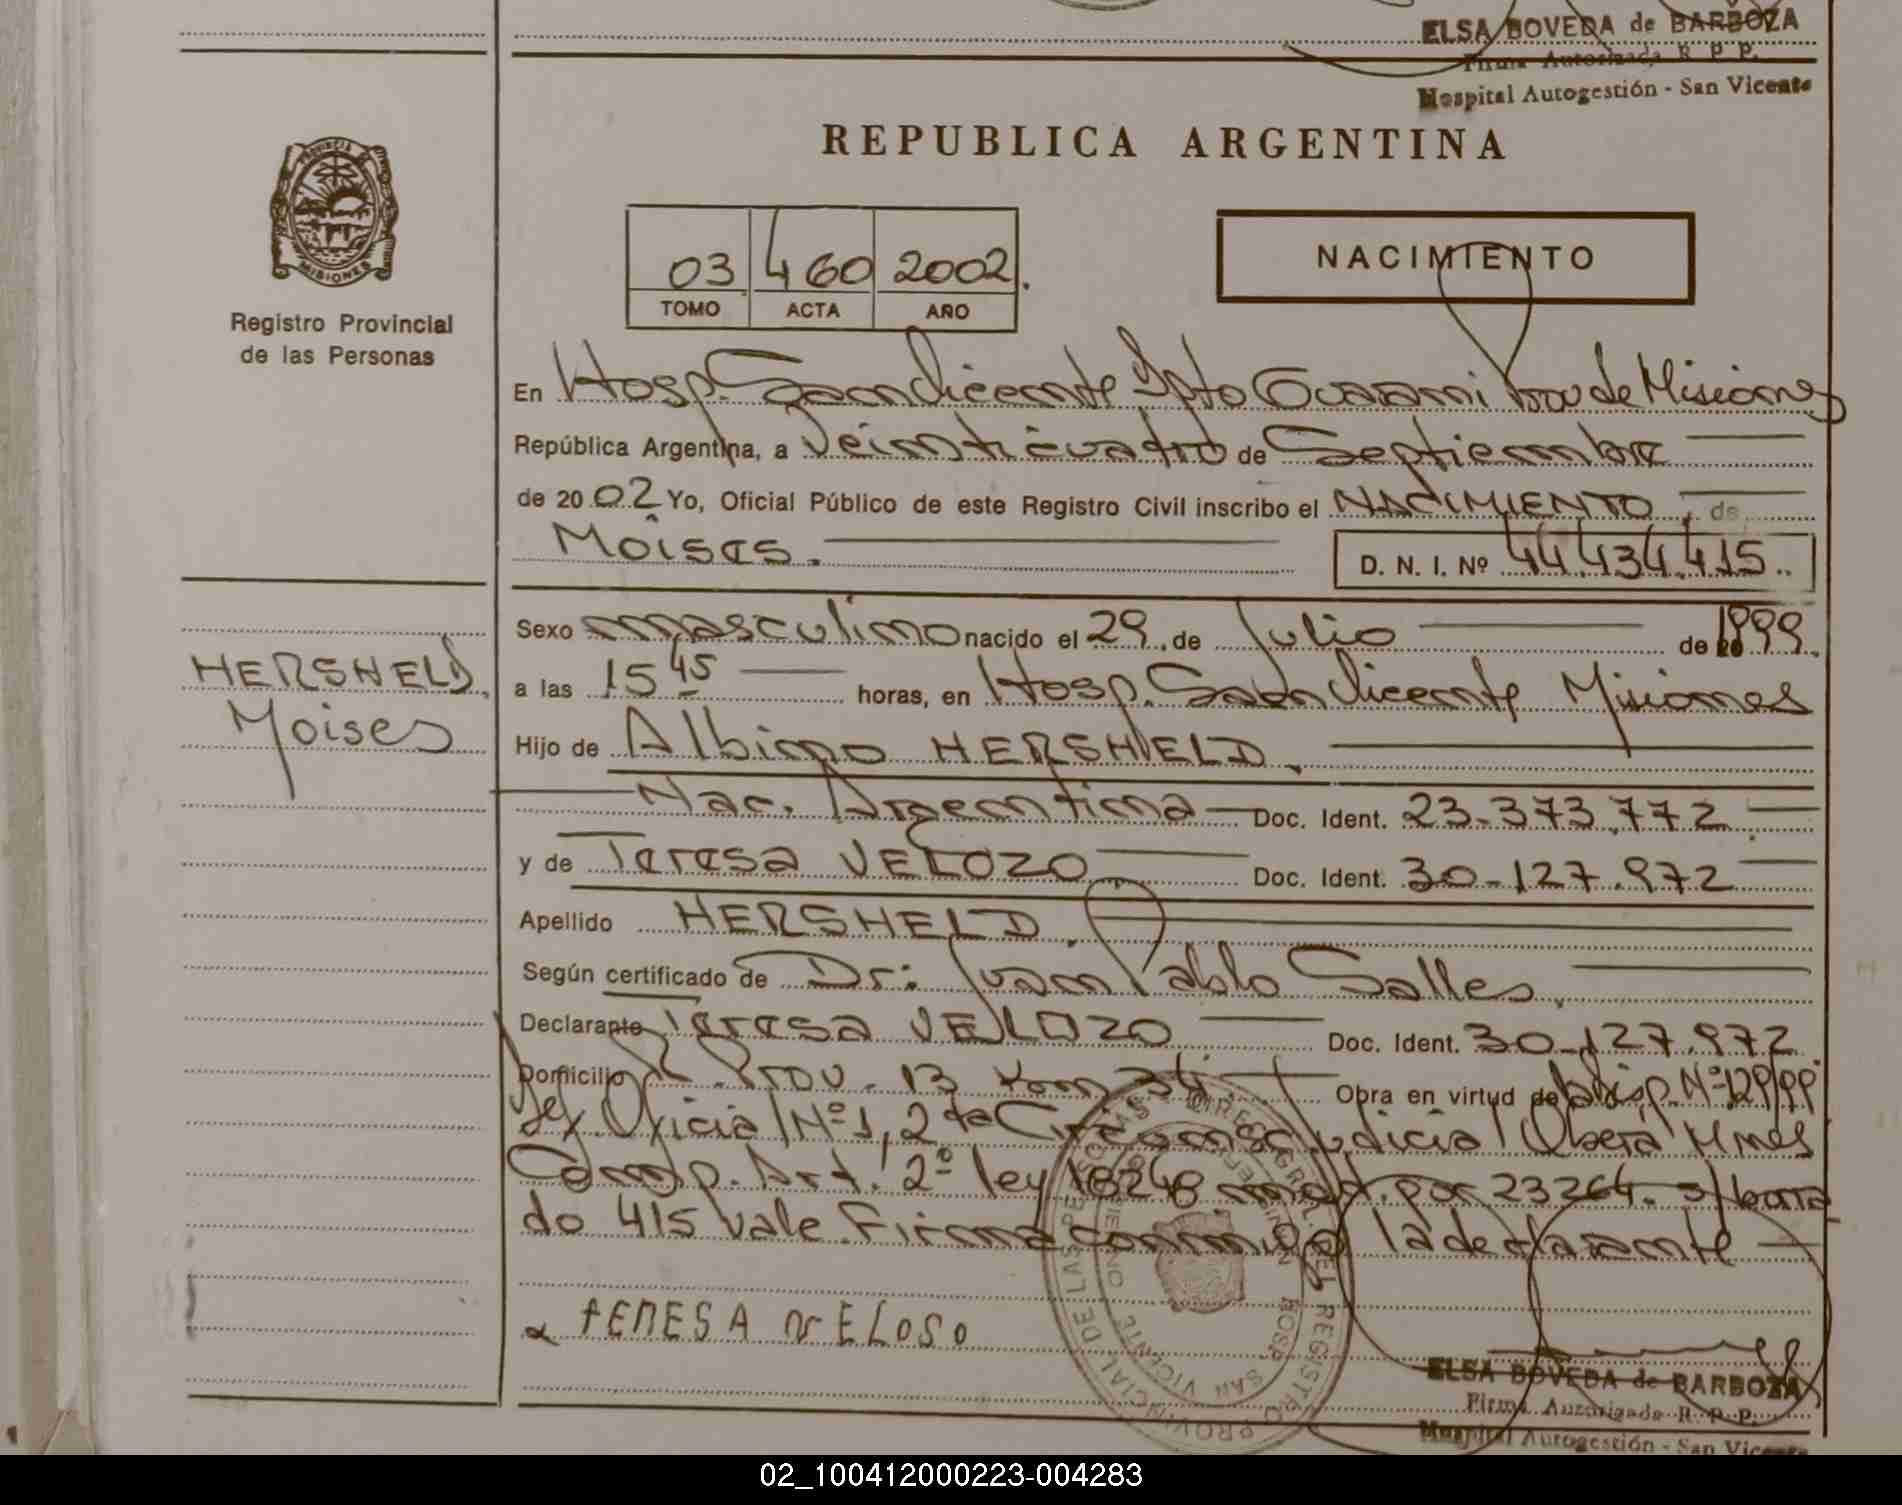 ELSA BOVEDA de BARBOZA
Firma Autorizada R. P. P.
Hospital Autogestión - San Vicente
REPUBLICA ARGENTINA
PROVINCIA DE
MISIONES
Registro Provincial
de las Personas
03 460 2002.
TOMO ACTA AÑO
NACIMIENTO
En Hosp. San Vicente Dpto Guaraní Prov de Misiones
República Argentina, a Veinticuatro de Septiembre
de 2002 Yo, Oficial Público de este Registro Civil inscribo el NACIMIENTO de
Moises.
D. N. I. Nº 44.434.415..
HERSHELD.
Moises
Sexo masculino nacido el 29 de Julio de 1999.
a las 15 45 horas, en Hosp. San Vicente Misiones
Hijo de Albino HERSHELD.
Nac. Argentina Doc. Ident. 23.373.772.
y de Teresa VELOZO Doc. Ident. 30.127.972
Apellido HERSHELD.
Según certificado de Dr: Juan Pablo Salles.
Declarante Teresa VELOZO Doc. Ident. 30.127.972
Domicilio R. Prov. 13 Km 34. Obra en virtud de Disp. Nº 129/99
Oficial Nº 1, 2da Judicial Oberá Mnes
Comp. Art. 2º ley 18248 mod. por 23264. s/borra
do 415 vale. Firma conmigo la declarante
x tERESA VELOSO
DIRECCION GRAL DEL REGISTRO PROVINCIAL DE LAS PERSONAS
HOSP. SAN VICENTE
ELSA BOVEDA de BARBOZA
Firma Autorizada R. P. P.
Hospital Autogestión - San Vicente
02_100412000223-004283